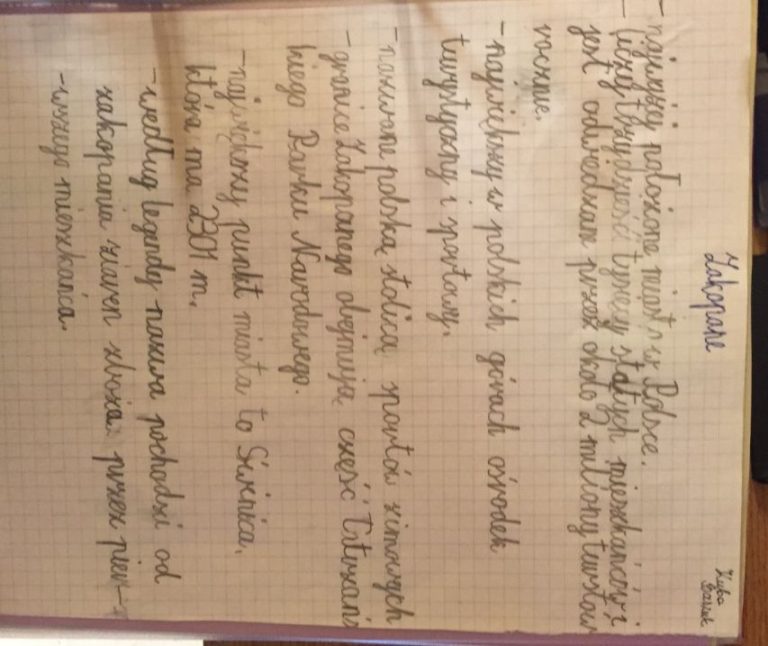 Kuba
Zakopane
- najwyżej położone miasto w Polsce.
- liczy trzydzieści tysięcy stałych mieszkańców i
jest odwiedzane przez około 2 miliony turystów
rocznie.
- największy w polskich górach ośrodek
turystyczny i sportowy.
- nazwane polską stolicą sportów zimowych
- granice Zakopanego obejmują część Tatrzańs
kiego Parku Narodowego.
- najwyższy punkt miasta to Świnica,
która ma 2301 m.
- według legendy nazwa pochodzi od
zakopania ziaren zboża przez pier-
wszego mieszkańca.